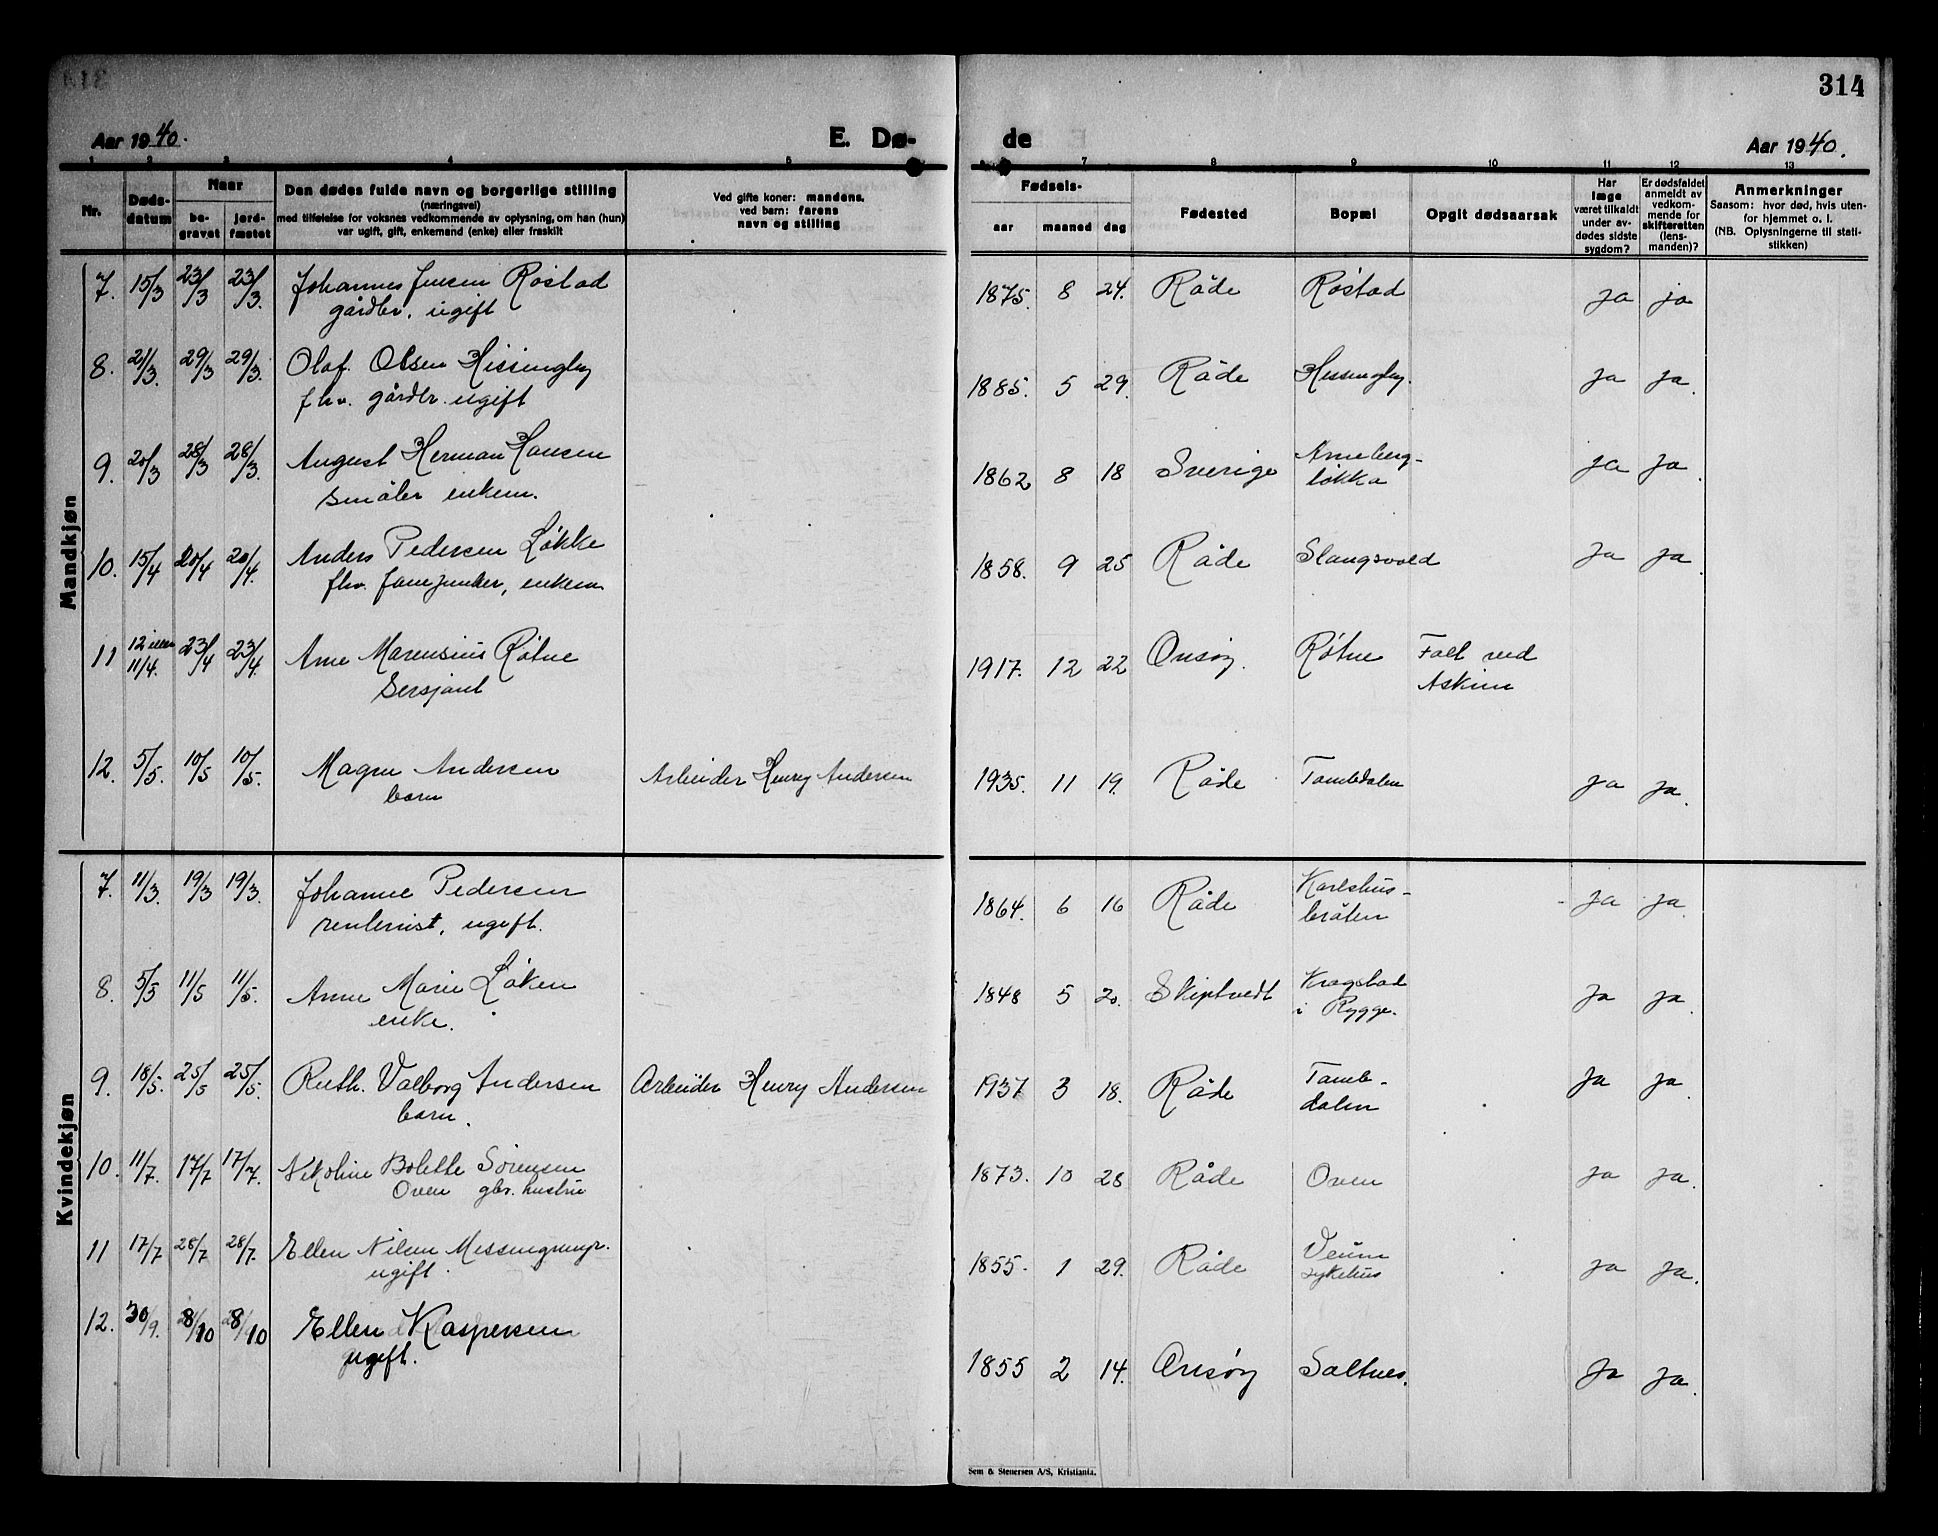 314
Aar 1940.
E. Dø-
de
Aar 1940.
1 2 3 4 5 7 8 9 10 11 12 13
Nr.
Døds-
datum
Naar
be-
gravet
jord-
fæstet
Den dødes fulde navn og borgerlige stilling
(næringsvei)
med tilføielse for voksnes vedkommende av oplysning, om han (hun)
var ugift, gift, enkemand (enke) eller fraskilt
Ved gifte koner: mandens.
ved barn: farens
navn og stilling
Fødsels-
aar maaned dag
Fødested
Bopæl
Opgit dødsaarsak
Har
læge
været tilkaldt
under av-
dødes sidste
sygdom?
Er dødsfaldet
anmeldt av
vedkom-
mende for
skifteretten
(lens-
manden)?
Anmerkninger
Saasom: hvor død, hvis uten-
for hjemmet o. l.
(NB. Oplysningerne til stati-
stikken)
Mandkjøn
7. 15/3 23/3 23/3. Johannes Jensen Røstad 1875. 8 24. Råde Røstad ja ja
gårdbr. ugift
8. 21/3. 29/3 29/3. Olaf Olsen Hissingby 1885. 5 29. Råde Hissingby. ja ja.
fhv. gårdbr. ugift
9. 20/3 28/3 28/3. August Herman Hansen 1862 8 18 Sverige Anneberg- ja ja.
småbr enkem. løkka
10. 15/4 20/4 20/4. Anders Pedersen Løkke 1858. 9 25 Råde Slangsvold ja ja.
fhv. fanejunker, enkem.
11 12 eller 11/4. 23/4 23/4. Arne Marensius Røtne 1917. 12 22 Onsøy. Røtne Falt ved
Sersjant Askim
12. 5/5. 10/5 10/5. Magne Andersen Arbeider Henry Andersen 1935. 11 19. Råde Tombdalen ja ja.
barn
Kvindekjøn
7. 11/3. 19/3 19/3. Johanne Pedersen 1864. 6 16 Råde Karlshus- ja ja.
rentenist, ugift. bråten
8. 5/5 11/5 11/5. Anne Marie Løken 1848 5 20. Skiptvedt Kragstad ja ja.
enke. i Rygge.
9. 18/5. 25/5 25/5. Ruth. Valborg Andersen Arbeider Henry Andersen 1937 3 18. Råde Tomb- ja ja.
barn. dalen
10. 11/7. 17/7 17/7. Nikoline Bolette Sørensen 1873. 10 28 Råde Oven ja ja.
Oven gbr. hustru
11 17/7 28/7 28/7. Ellen Nilsen 1855. 1 29. Råde Veum ja ja.
ugift. sykehus
12. 30/9. 28/10 28/10 Ellen Kaspersen 1855 2 14. Onsøy Saltnes. ja ja.
ugift.
Sem & Stenersen A/S, Kristiania.